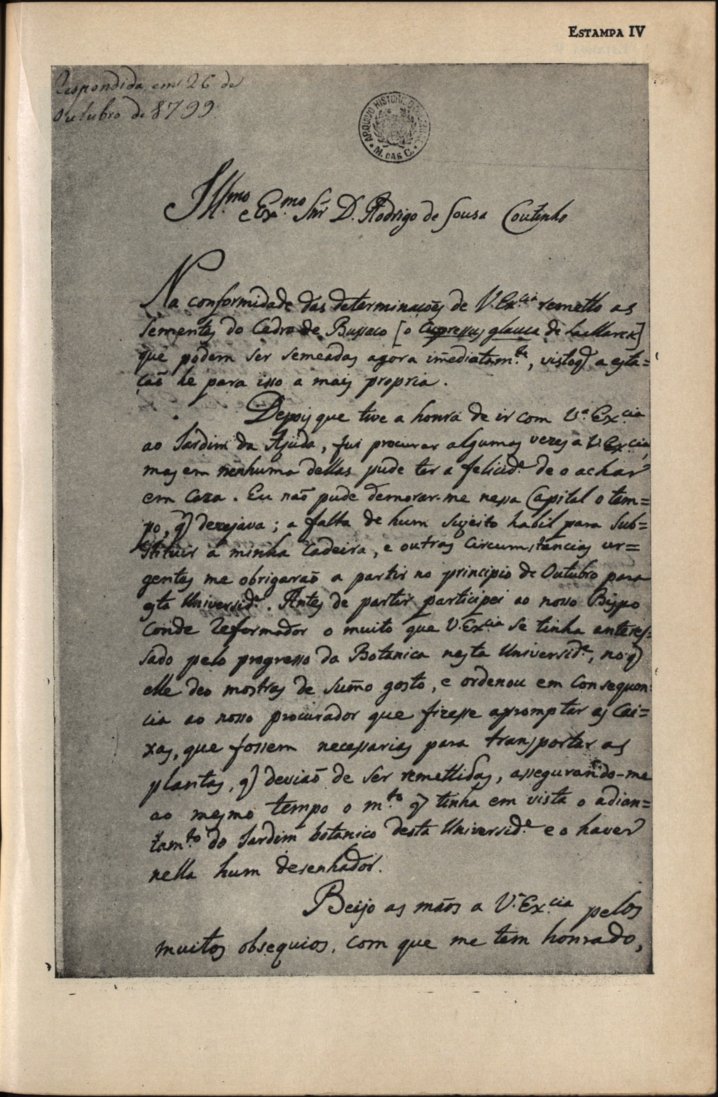 ESTAMPA IV
Respondida em 26 de
Outubro de 1799
ARQUIVO HISTOR. COLONIAL
M. DAS C.
Ill.mo e Ex.mo Snr D. Rodrigo de Sousa Coutinho
Na conformidade das determinações de V. Ex.cia remetto as
sementes do Cedro de Bussaco [o Cupressus glauca de La Marck]
que podem ser semeadas agora imediatam.te, visto q̃ a esta=
ção he para isso a mais propria.
Depois que tive a honra de ir com V.ª Ex.cia
ao Jardim da Ajuda, fui procurar algumas vezes a V. Ex.cia,
mas em nenhuma dellas pude ter a felicid.e de o achar
em Caza. Eu não pude demorar-me nessa Capital o tem=
po, q̃ dezejava; a falta de hum sujeito habil para subs=
tituir a minha Cadeira, e outras circumstancias ur=
gentes me obrigarão a partir no principio de Outubro para
esta Universid.e. Antes de partir participei ao nosso Bispo
Conde Reformador o muito que V. Ex.cia se tinha enteres=
sado pelo progresso da Botanica nesta Universid.e, no q̃
elle deo mostras de sumo gosto, e ordenou em consequen=
cia ao nosso procurador que fizesse apromptar as Cai=
xas, que fossem necessarias para transportar as
plantas, q̃ devião de ser remettidas, assegurando-me
ao mesmo tempo o m.to q̃ tinha em vista o adian=
tam.to do Jardim botanico desta Universid.e e o haver
nella hum desenhador.
Beijo as mãos a V. Ex.cia pelos
muitos obsequios, com que me tem honrado,